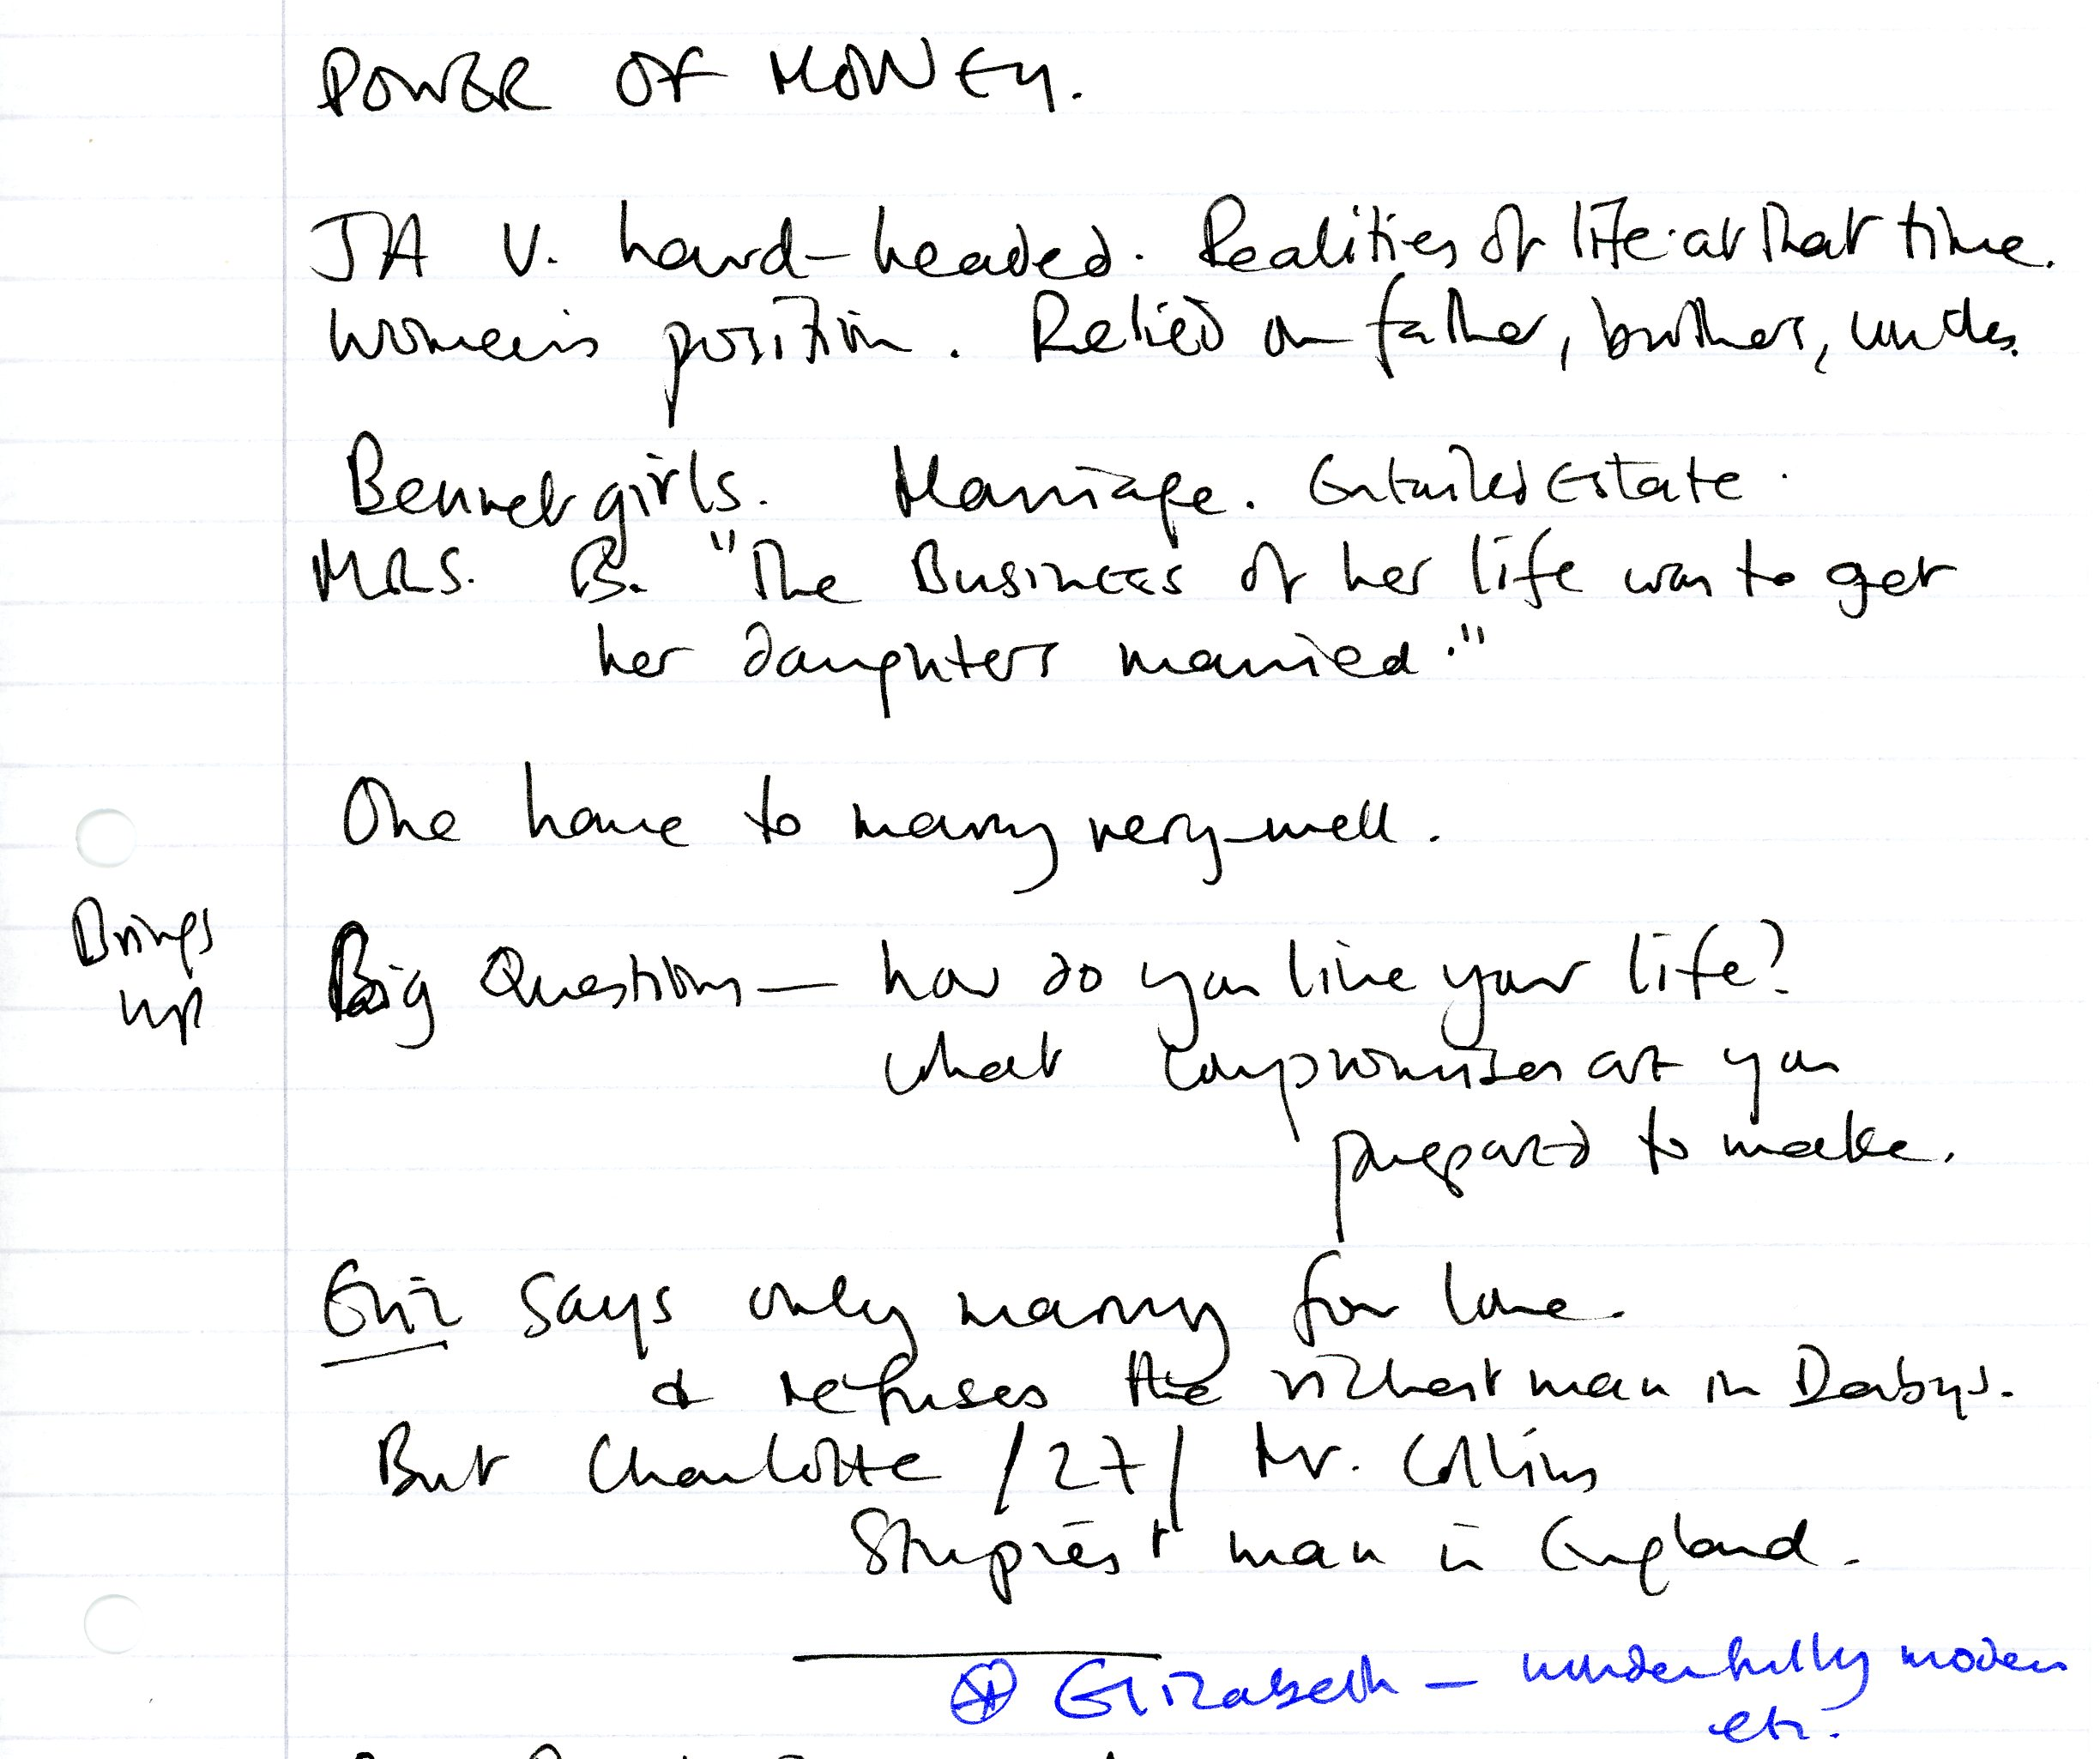 POWER OF MONEY.
JA V. hard-headed. Realities of life at that time.
Women's position. Relied on father, brothers, uncles.
Bennet girls. Marriage. Entailed Estate.
MRS. B. "The Business of her life was to get
her daughters married."
One have to marry very well.
Brings
up
Big Questions — how do you live your life?
what compromises are you
prepared to make.
Eliz says only marry for love.
& refuses the richest man in Derbys.
But Charlotte /27/ Mr. Collins
Stupiest man in England.
Elizabeth — wonderfully modern
etc.